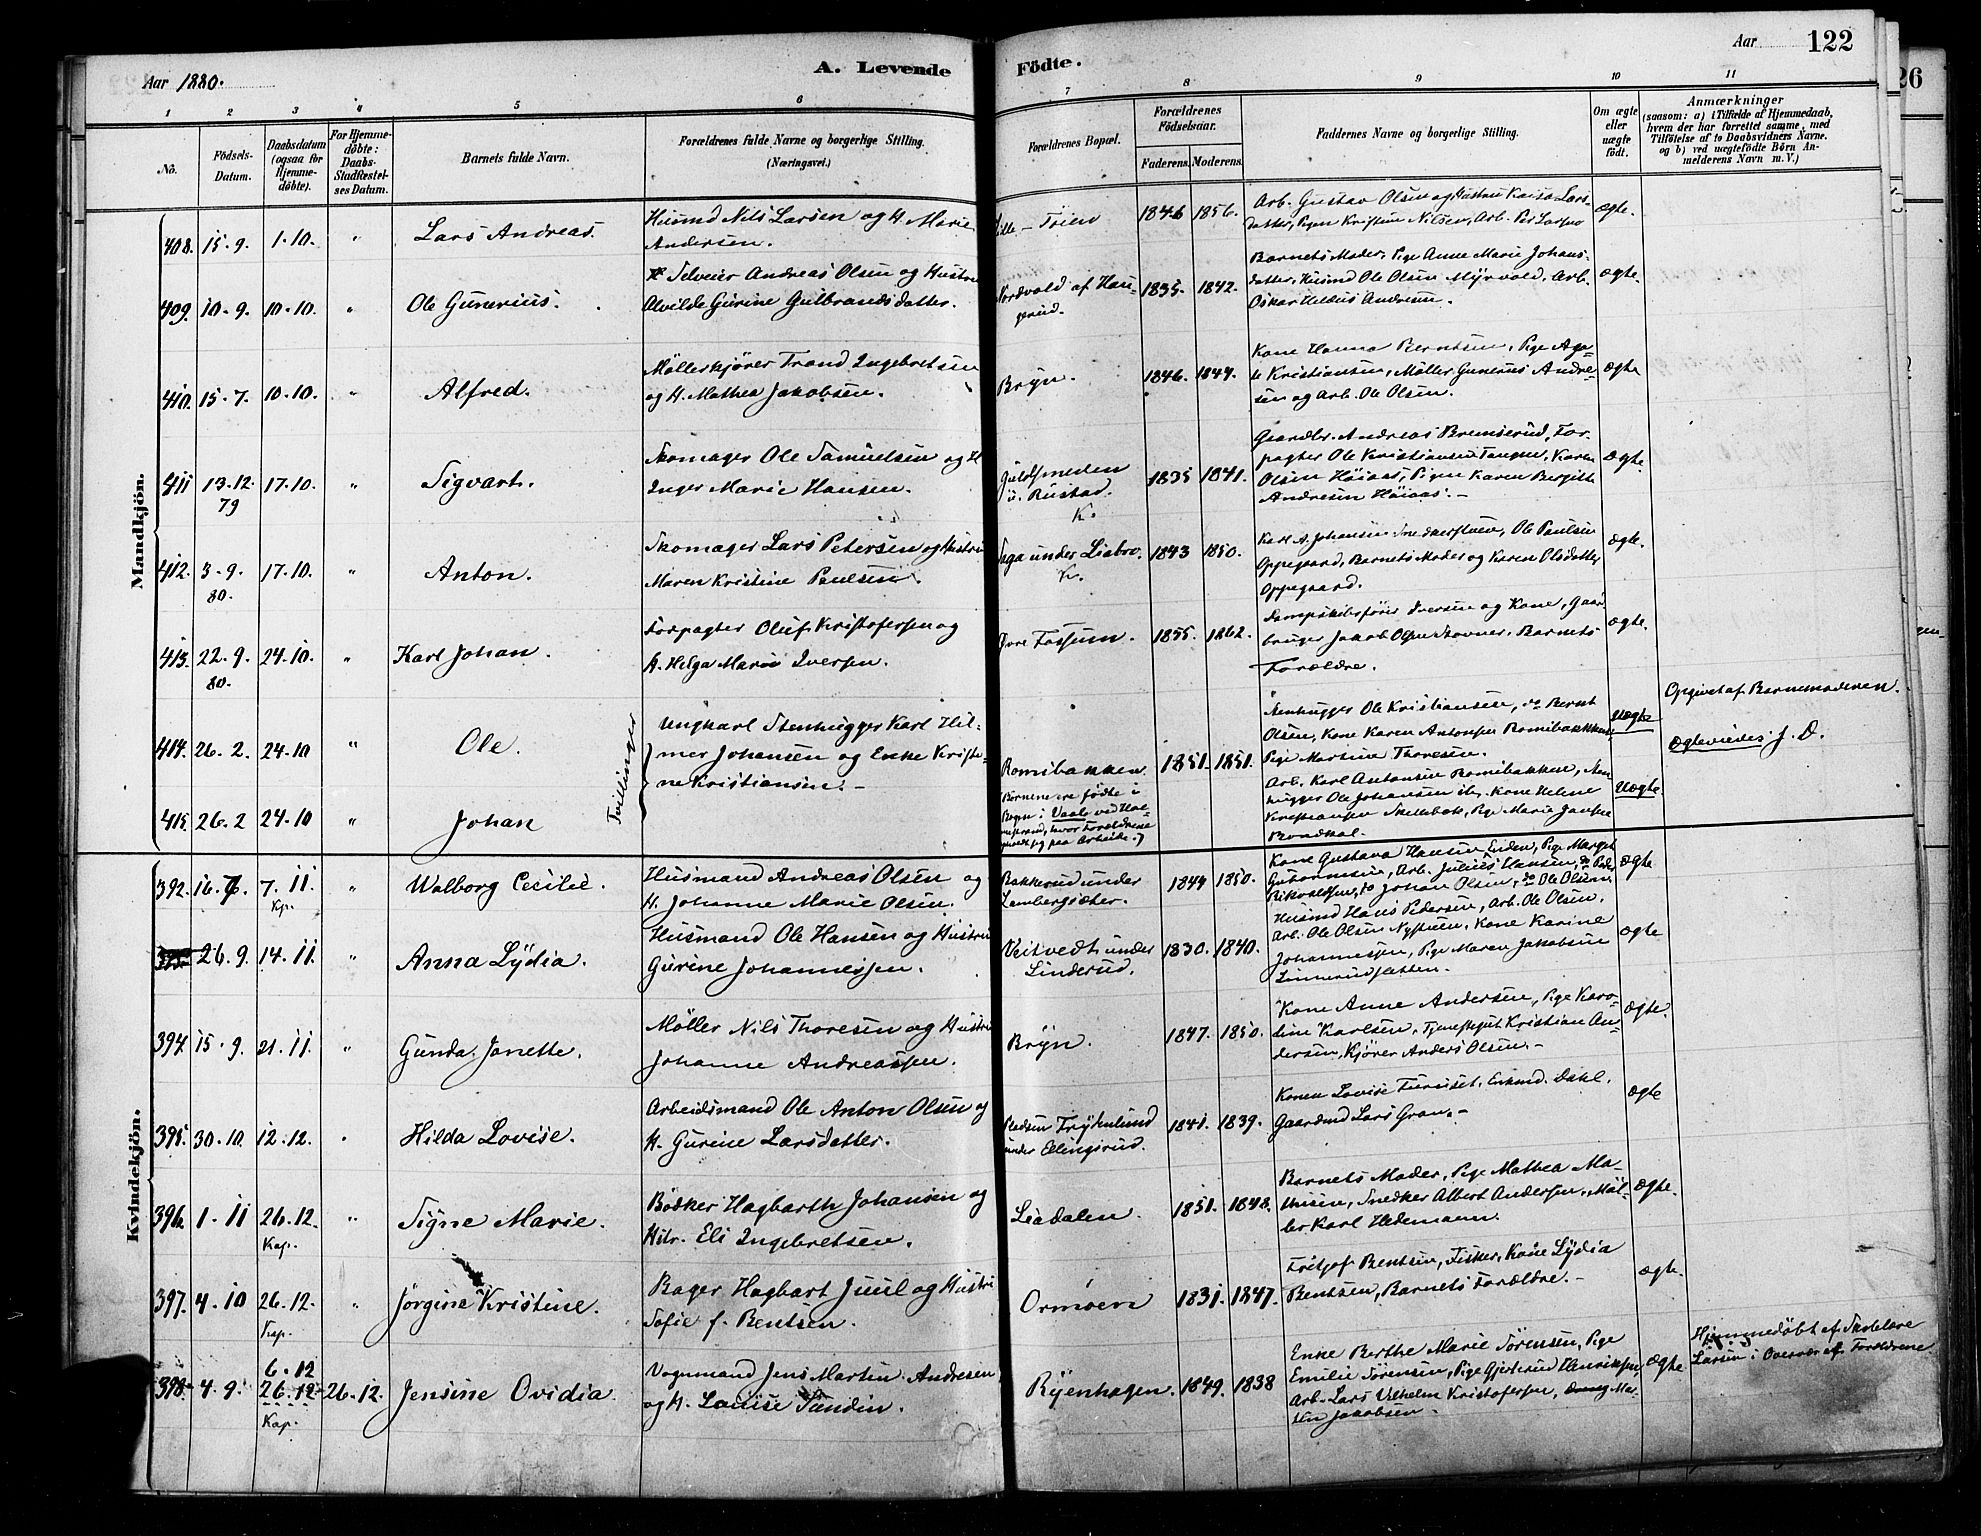 Aar 1880.
A. Levende
Födte.
Aar
122
26
1
2
3
4
5
6
7
8
9
10
11
No.
Födsels-
Datum.
Daabsdatum
(ogsaa for
Hjemme-
döbte).
For Hjemme-
döbte:
Daabs-
Stadfæstel-
ses Datum.
Barnets fulde Navn.
Forældrenes fulde Navne og borgerlige Stilling.
(Næringsvei.)
Forældrenes Bopæl.
Forældrenes
Födselsaar.
Faderens.
Moderens.
Faddernes Navne og borgerlige Stilling.
Om ægte
eller
uægte
födt.
Anmærkninger
(saasom: a) i Tilfælde af Hjemmedaab,
hvem der har forrettet samme, med
Tilföielse af to Daabsvidners Navne.
og b) ved uægtefödte Börn An-
melderens Navn m. V.)
Mandkjön.
408. 15-9. 1-10. " Lars Andreas.
Husmd Nils Larsen og H. Marie
Andersen.
Lille-Tøien 1846 1856.
Arb. Gustav Olsen og Hustru Kaisa Lars-
datter, Pigen Kristine Nilsen, Arb. Per Larsen
Ægte.
409. 10-9. 10-10. " Ole Gunerius.
Selveier Andreas Olsen og Hustru
Alvilde Gurine Gulbrandsdatter.
Nordvold af Hau-
gerud.
1835. 1842.
Barnets Moder, Pige Anne Marie Johans-
datter, Husmd Ole Olsen Myrvold, Arb.
Oskar Helius Andresen.
Ægte.
410. 15-7. 10-10. " Alfred.
Møllerkjører Trond Ingebretsen
og H. Mathea Jakobsen.
Bryn. 1846. 1847.
Kone Hanna Berntsen, Pige Aga-
te Kristiansen, Møller Gunerius Andre-
sen og Arb. Ole Olsen.
Ægte
411 13-12.
79
17.10. " Sigvart.
Skomager Ole Samuelsen og H.
Inger Marie Hansen.
Gulofsmeden
u. Rustad.
K.
1835 1841.
Gaardbr. Andreas Bremserud, For-
pagter Ole Kristiansen Tangen, Karen
Olsen Høiaas, Pigen Karen Bergitte
Andresen Høiaas.-
Ægte.
412. 3-9.
80.
17.10. " Anton.
Skomager Lars Petersen og Hustru
Maren Kristine Paulsen.
Saga under Liabro.
K.
1843 1850.
Karl A. Johansen Snedkerstuen, Ole Paulsen
Oppegaard, Barnets Moder og Karen Olsdatter
Oppegaard.
Ægte.
413. 22.9.
80.
24.10. " Karl Johan.
Forpagter Oluf Kristofersen og
H. Helga Marie Iversen.
Øvre Fossum. 1855. 1862.
Dampskibsfører Iversen og Kone, Gaar
bruger Jakob Olsen Stovner, Barnets
Forældre.
Ægte.
414. 26.2. 24.10 " Ole.
Tvillinger
Ungkarl Stenhugger Karl Hil-
mer Johansen og Enke Kristi-
ne Kristiansen.-
Romibakken.
1851. 1851.
Stenhugger Ole Kristiansen, do Bernt
Olsen, Kone Karen Antonsen Romibakken
Pige Martine Thoresen.
Uægte
Opgivet af Barnemoderen.
Ægteviedes J. D.
415. 26.2 24.10 " Johan
Børnene ere fødte i
Bryn i Vaale ved Hol-
mestrand, hvor Forældrene
paa Arbeide.)
Arb. Karl Antonsen Romibakken, Sten
hugger Ole Johansen ib. Kone Helene
Kristiansen Skillebæk, Pige Marie Jansen
Uægte.
Kvindekjön.
392. 16.7. 7.11.
Kp.
" Walborg Cecilie.
Husmand Andreas Olsen og
H. Johanne Marie Olsen.
Bakkerud under
Lambergsæter.
1849 1850.
Kone Gustava Hansen Enden, Pige Margit
Gutormsen, Arb. Julius Hansen, do Peder
Rikvoldsen, do Johan Olsen, do Ole Olsen,
Ægte
393. 26.9. 14.11. " Anna Lydia.
Husmand Ole Hansen og Hustru
Gurine Johannessen.
Veitvedt under
Linderud.
1830. 1840.
Husmd Hans Pedersen, Arb. Ole Olsen,
Arb. Ole Olsen Nystuen, Kone Karine
Johannessen, Pige Maren Jakobsen
Linnerudsletten.
Ægte
394. 15-9. 21.11. " Gunda Janette.
Møller Nils Thoresen og Hustru
Johanne Andreassen.
Bryn. 1847. 1850.
Kone Anne Andersen, Pige Karo-
line Karlsen, Tjenestegut Kristian An-
dersen, Kjører Anders Olsen.-
Ægte.
395. 30.10. 12.12. " Hilda Lovise.
Arbeidsmand Ole Anton Olsen og
H. Gurine Larsdatter.
Pladsen Frydenlund
under Ellingsrud.
1841. 1839.
Konen Lovise Furuset, Enkmd. Dahl,
Gaardmd Lars Gran.-
Ægte
396. 1-11 26.12.
Kap.
" Signe Marie.
Bødker Hagbarth Johansen og
Hstr. Eli Ingebretsen.
Liadalen. 1851. 1848.
Barnets Moder, Pige Mathea Ma-
thisen, Snedker Albert Andersen, Mal-
ler Karl Hedemann.
Ægte.
397. 4.10 26.12.
Kap.
" Jørgine Kristine.
Bager Hagbart Juul og Hustru
Sofie f. Bentsen.
Ormøen 1831. 1847.
Fritjof Bentsen, Fisker, Kone Lydia
Bentsen, Barnets Forældre.-
Ægte.
398. 4.9. 6.12
26.12.
Kap.
26.12. Jensine Ovidia.
Vognmand Jens Martin Andresen
og H. Louise Sundin.
Ryenhagen. 1849. 1838
Enke Berthe Marie Sørensen, Pige
Emilie Sørensen, Pige Gjertrud Henriksen,
Arb. Lars Vilhelm Kristofersen, Ma-
sen Jakobsen.
Ægte
Hjemmedøbt af Skolelære
Larsen i Overvær af Forældrene